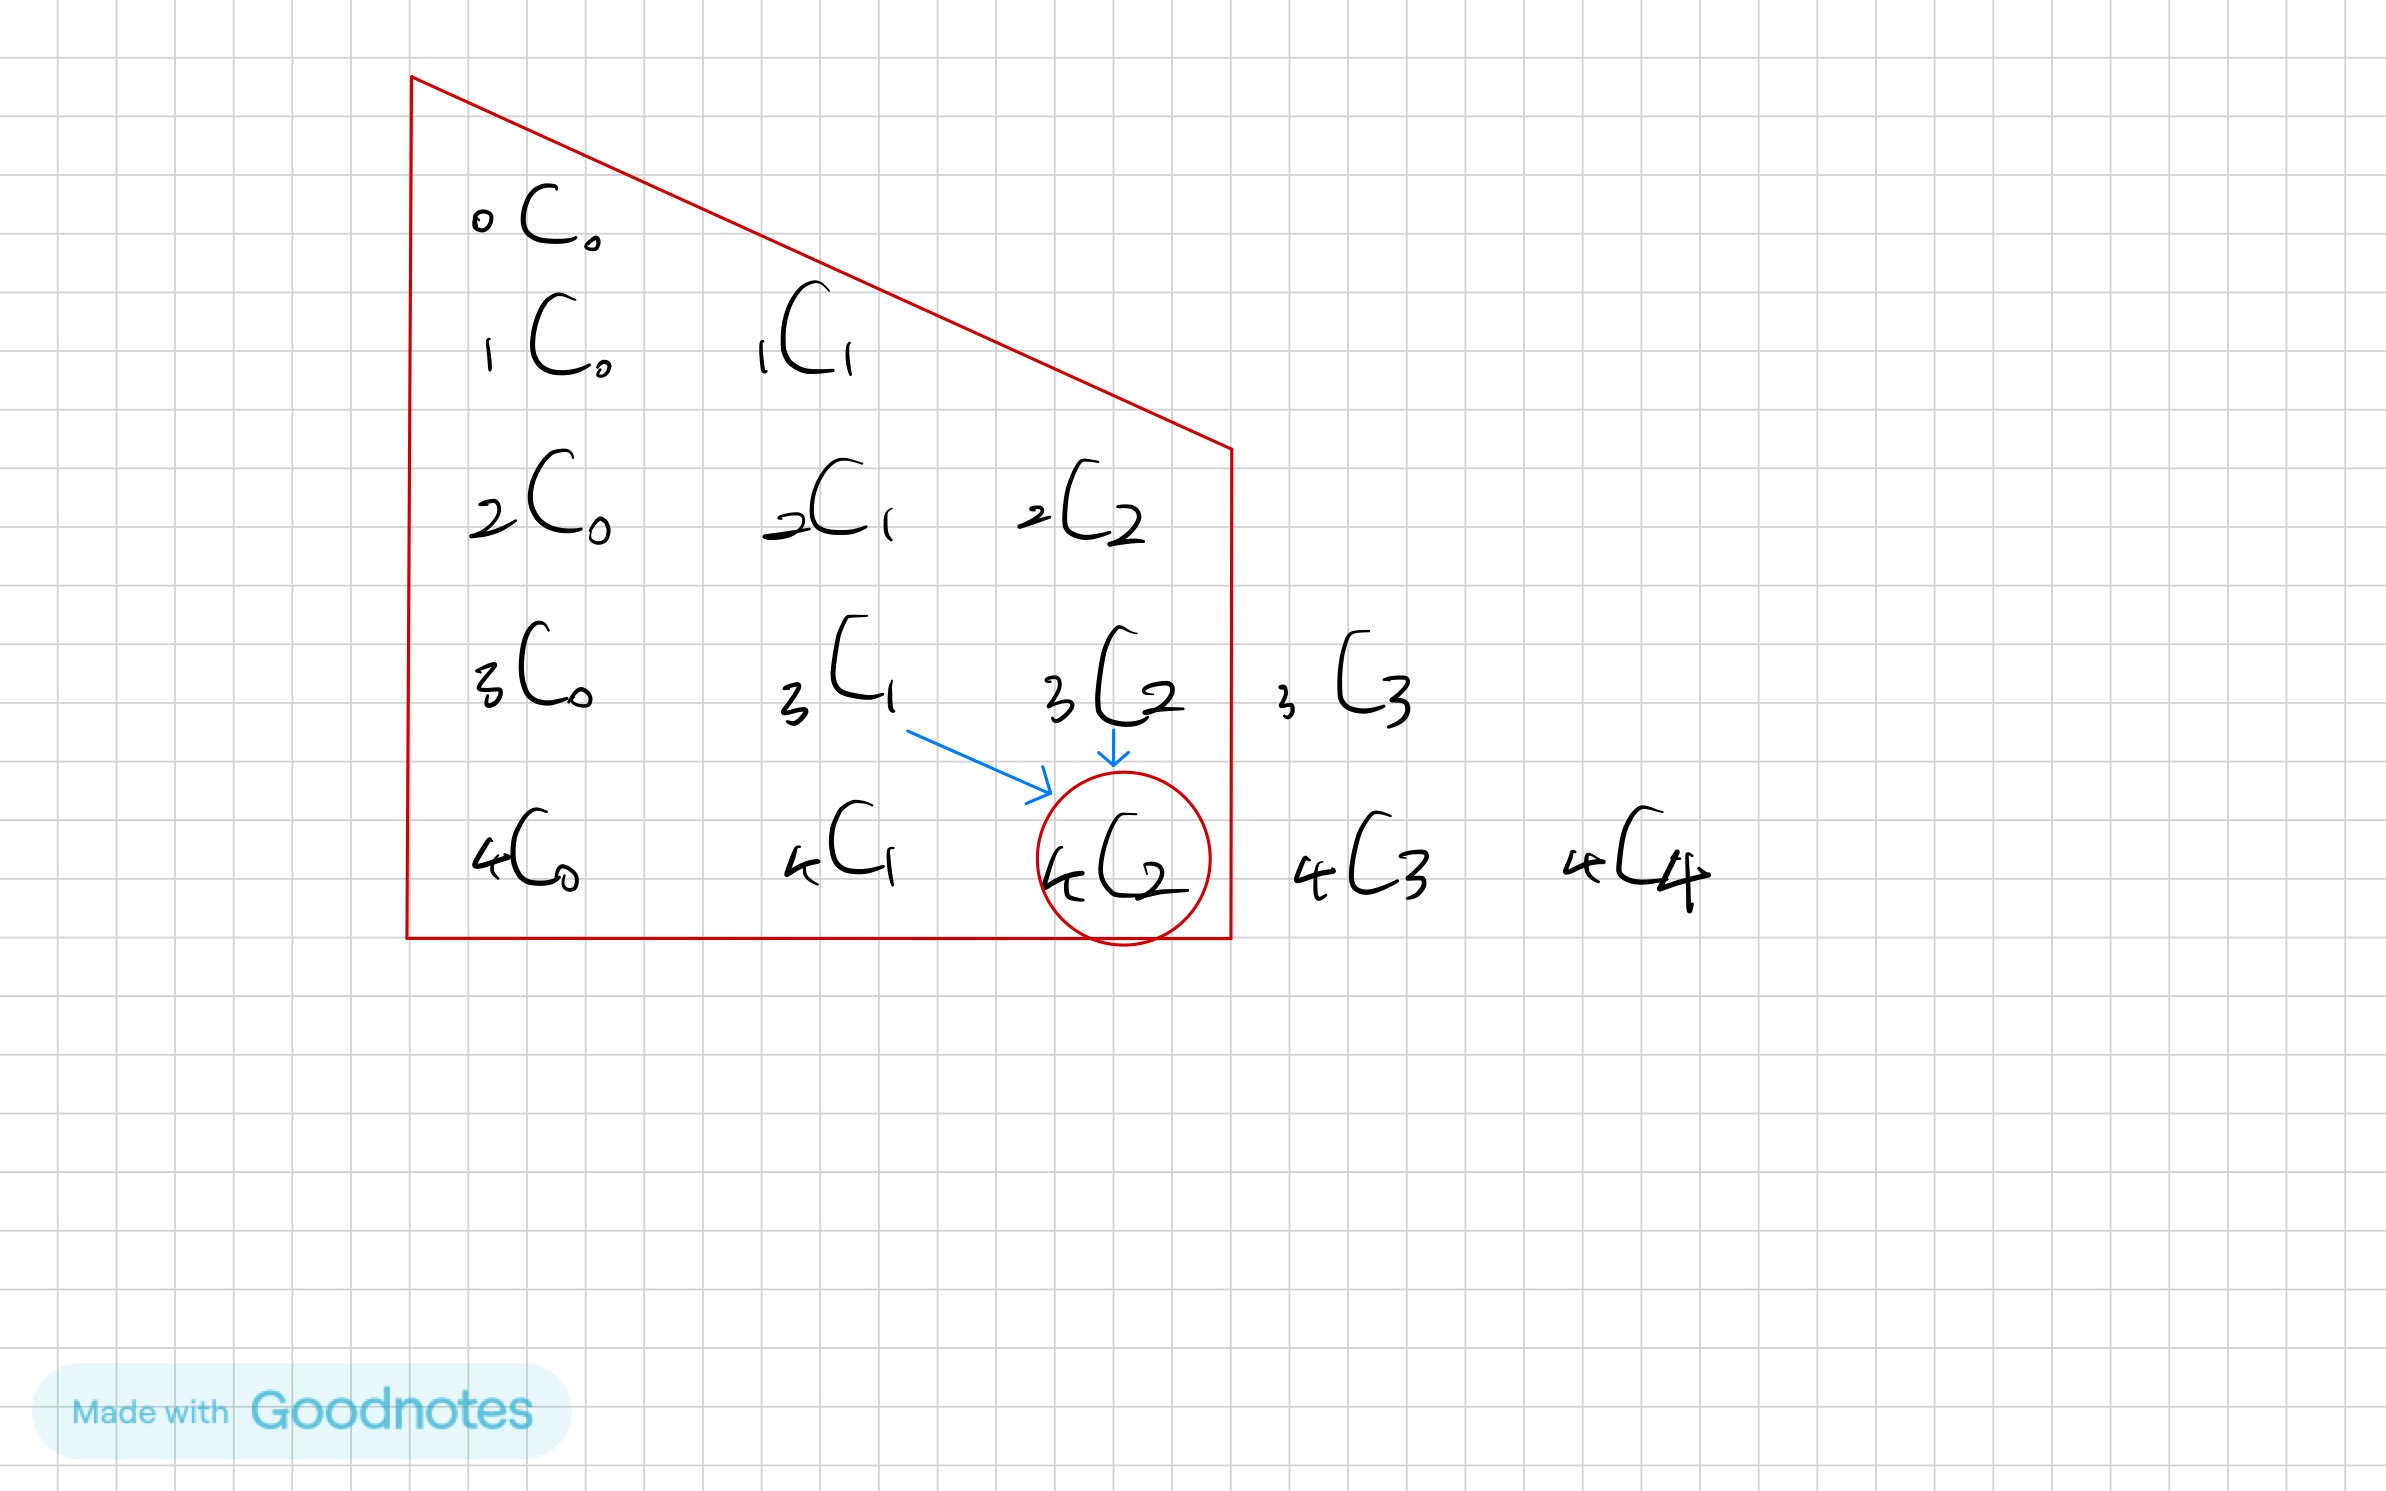 0C0
1C0 1C1
2C0 2C1 2C2
3C0 3C1 3C2 3C3
4C0 4C1 4C2 4C3 4C4
Made with Goodnotes